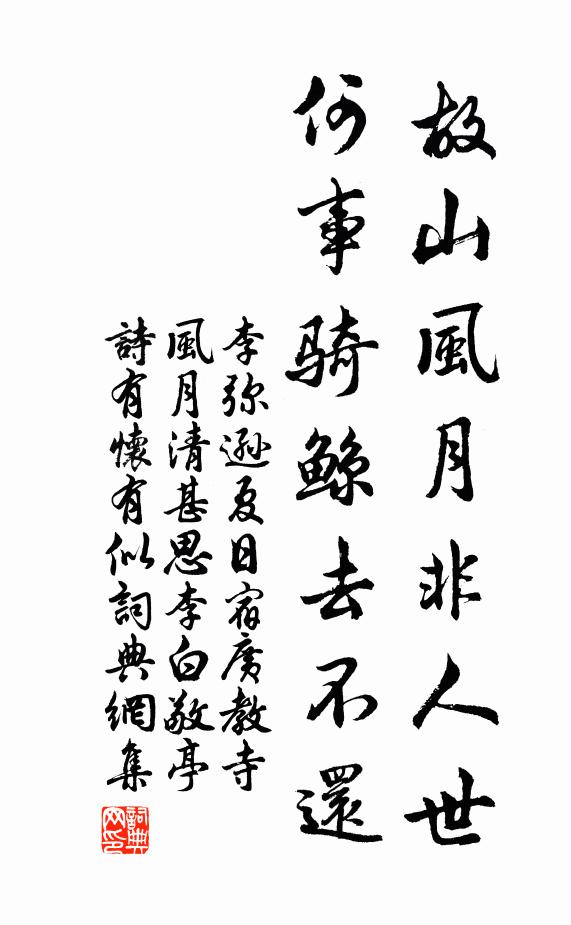 故山風月非人世
何事騎鯨去不還
李弥遜夏日宿廣教寺
風月清甚思李白敬亭
詩有懷有似詞典網集
詞典網印